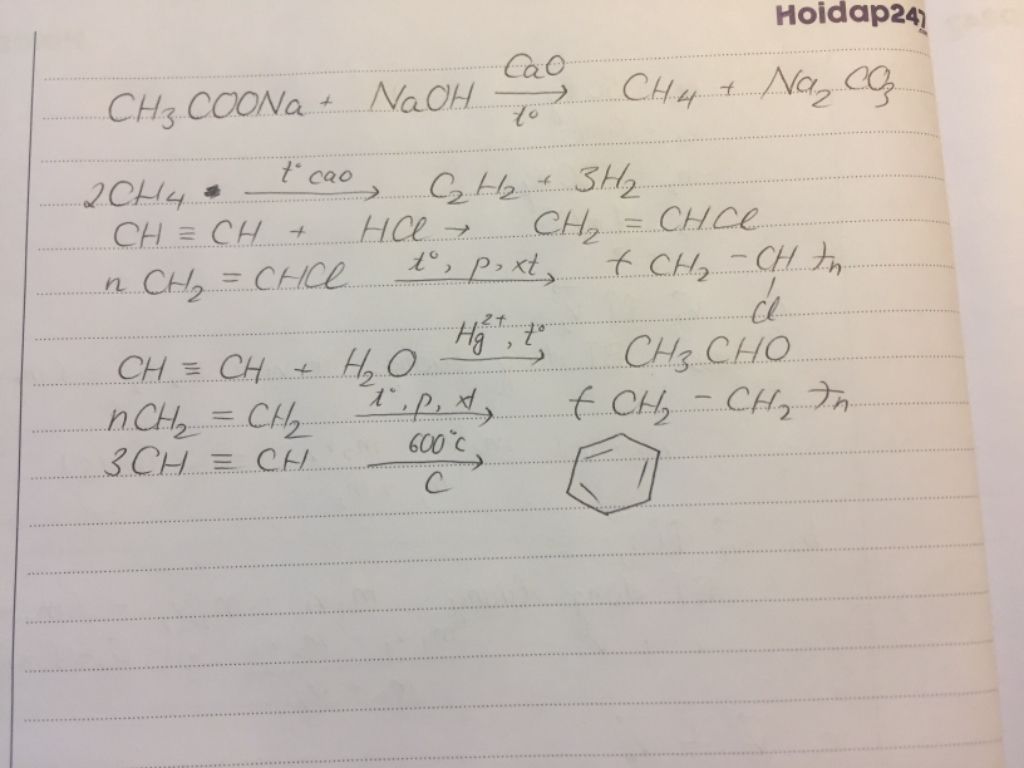 Hoidap247
CH₃COONa + NaOH —CaO, t°→ CH₄ + Na₂CO₃
2CH₄ —t° cao→ C₂H₂ + 3H₂
CH ≡ CH + HCl → CH₂ = CHCl
n CH₂ = CHCl —t°, p, xt→ (CH₂ – CH(Cl))n
CH ≡ CH + H₂O —Hg²⁺, t°→ CH₃CHO
nCH₂ = CH₂ —t°, p, xt→ (CH₂ – CH₂)n
3CH ≡ CH —600°C, C→